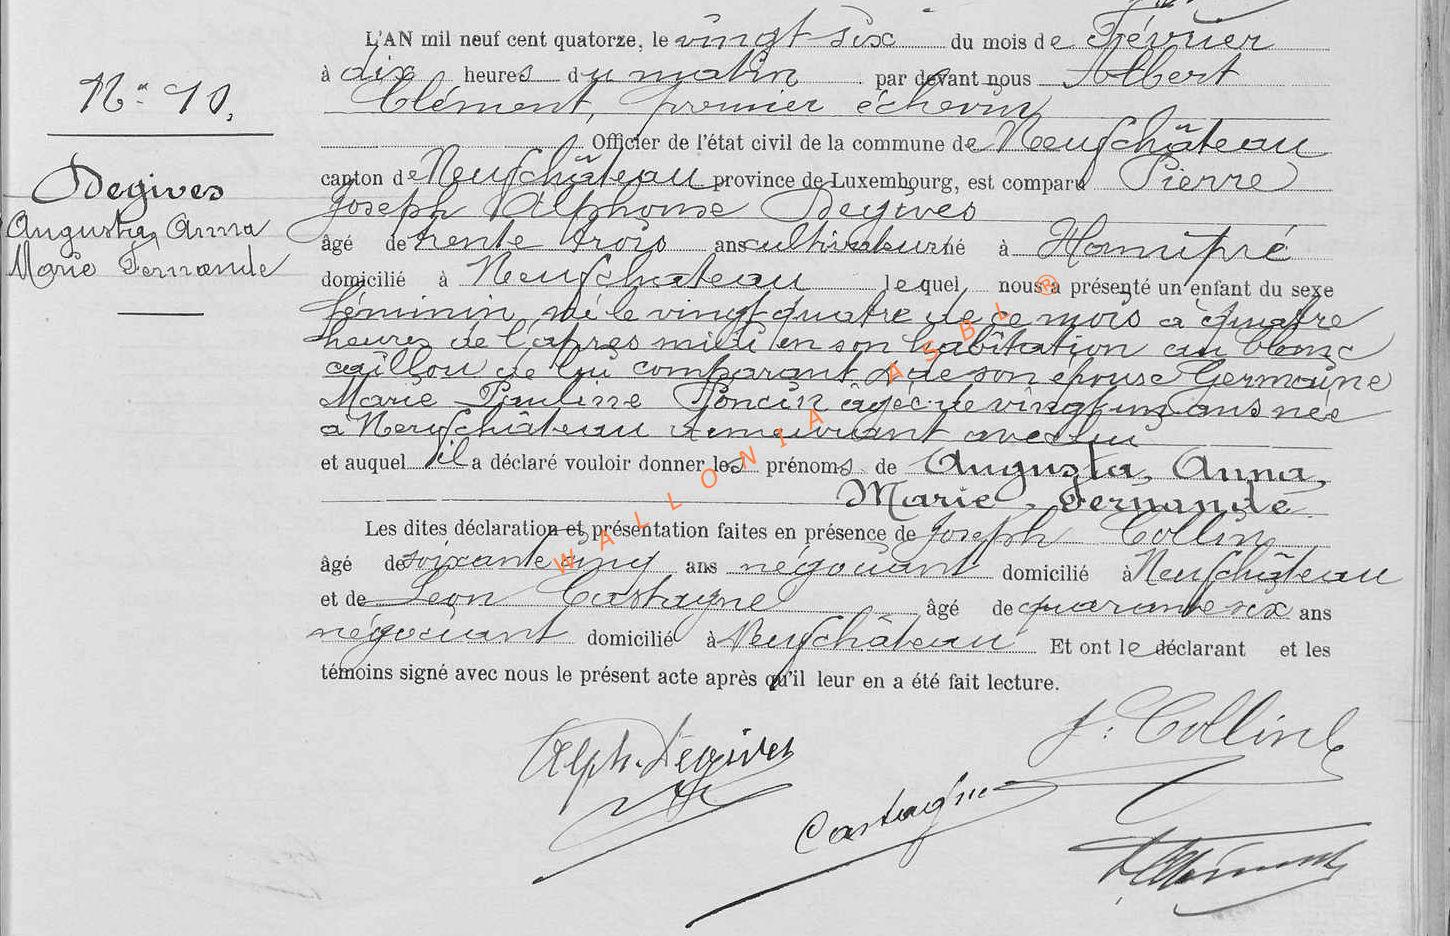 L'AN mil neuf cent quatorze, le vingt six du mois de Février
à dix heures du matin par devant nous Albert
Clément, premier échevin,
Officier de l'état civil de la commune de Neufchâteau
canton de Neufchâteau province de Luxembourg, est comparu Pierre
Joseph Alphonse Degives
âgé de trente trois ans cultivateur né à Hamipré
domicilié à Neufchateau lequel nous a présenté un enfant du sexe
féminin né le vingt quatre de ce mois à quatre
heures de l'après midi en son habitation au blanc
caillou de lui comparant & de son épouse Germaine
Marie Pauline Poncin agée de vingt ans née
à Neufchâteau demeurant avec lui
et auquel il a déclaré vouloir donner les prénoms de Augusta, Anna,
Marie, Fernande
Les dites déclaration et présentation faites en présence de Joseph Collin
âgé de soixante cinq ans négociant domicilié à Neufchâteau
et de Léon Castagne âgé de quarante six ans
négociant domicilié à Neufchâteau Et ont le déclarant et les
témoins signé avec nous le présent acte après qu'il leur en a été fait lecture.
N° 10.
Degives
Augusta, Anna
Marie Fernande
Alph. Degives
J. Collin
Castagne
AClément
WALLONIA ASBL ®